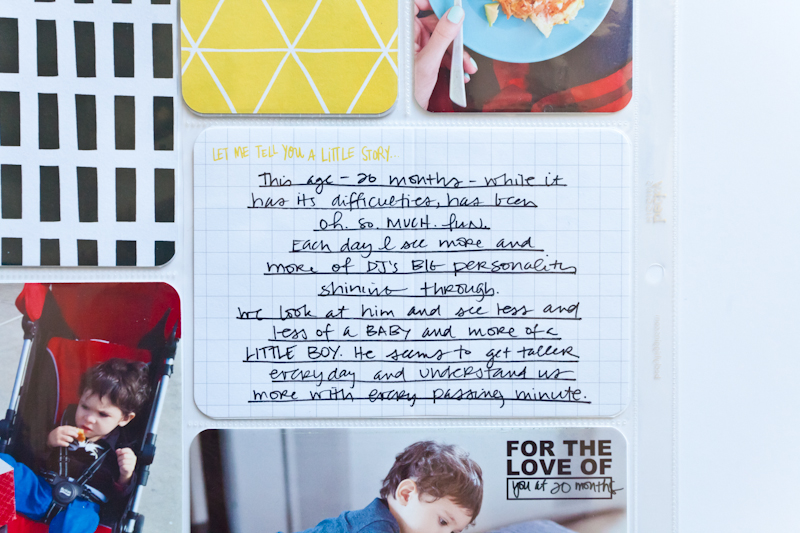 LET ME TELL YOU A LITTLE STORY..
This age - 20 months - while it
has its difficulties, has been
oh. so. MUCH. fun.
Each day I see more and
more of DJ's BIG personality
shining through.
We look at him and see less and
less of a BABY and more of a
LITTLE BOY. He seems to get taller
everyday and understand us
more with every passing minute.
FOR THE
LOVE OF
you at 20 months